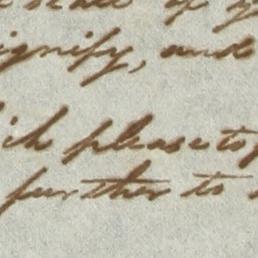 ignify, and
ich please to
further to